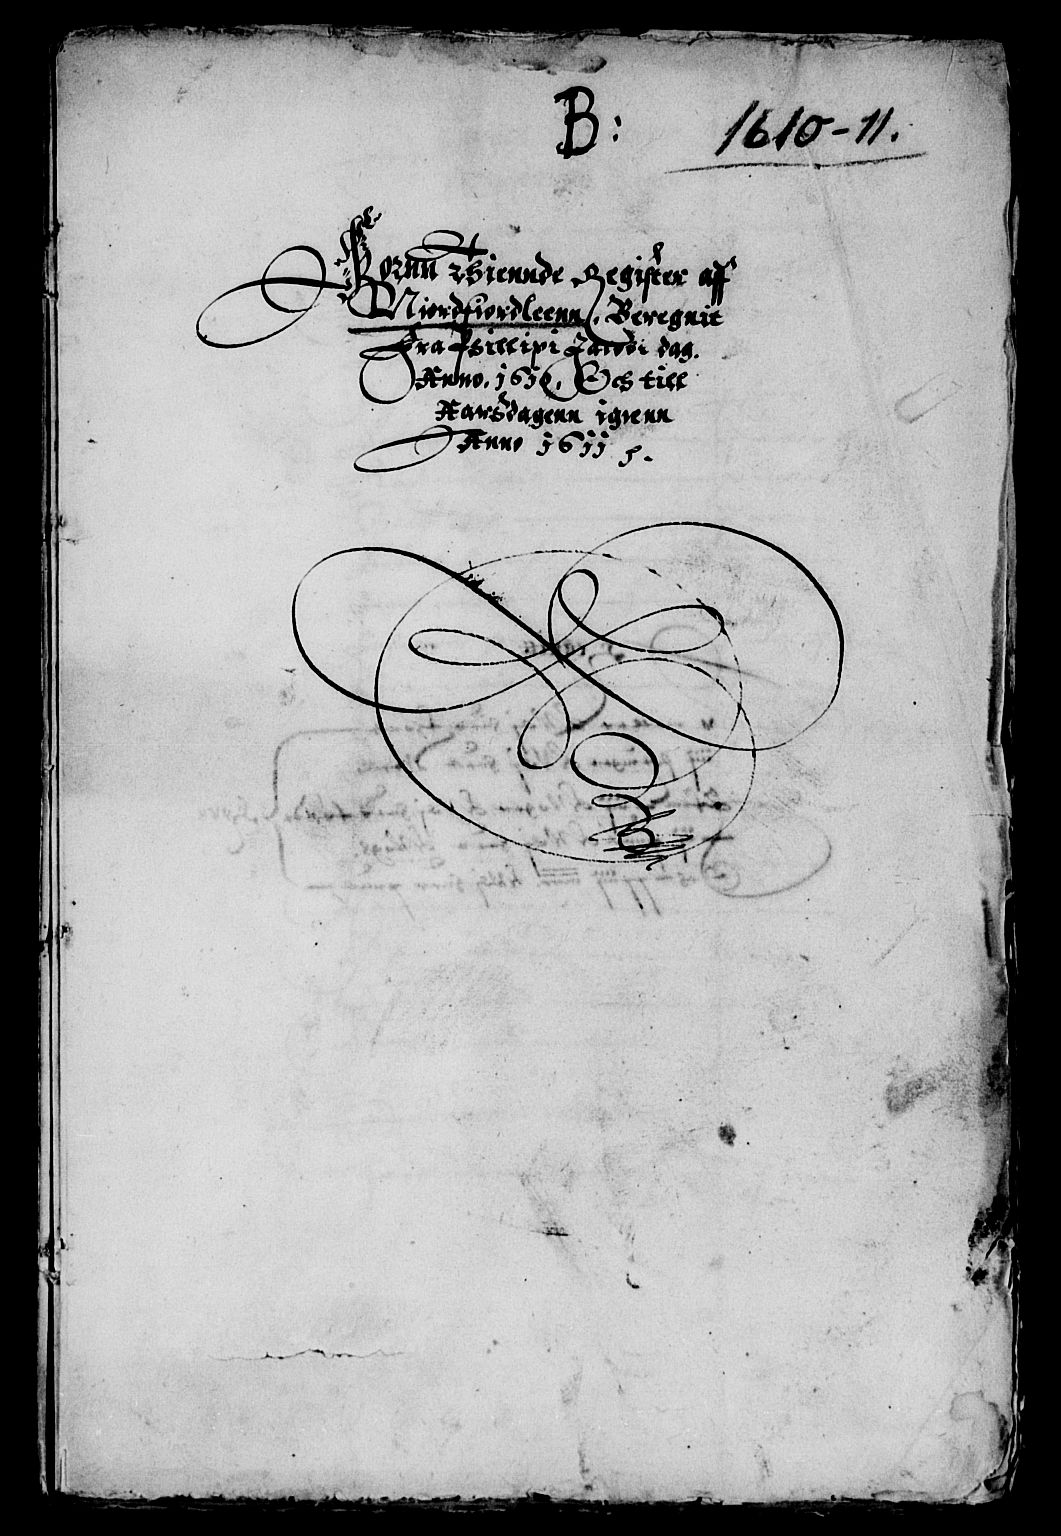 B: 1610-11.
Kornn Thiennde Register aff
Niordfiordleenn, Beregnit
fra Phillipi Jacobi dag.
Anno. 1610. Och till
Aarsdagenn igienn
Anno 1611